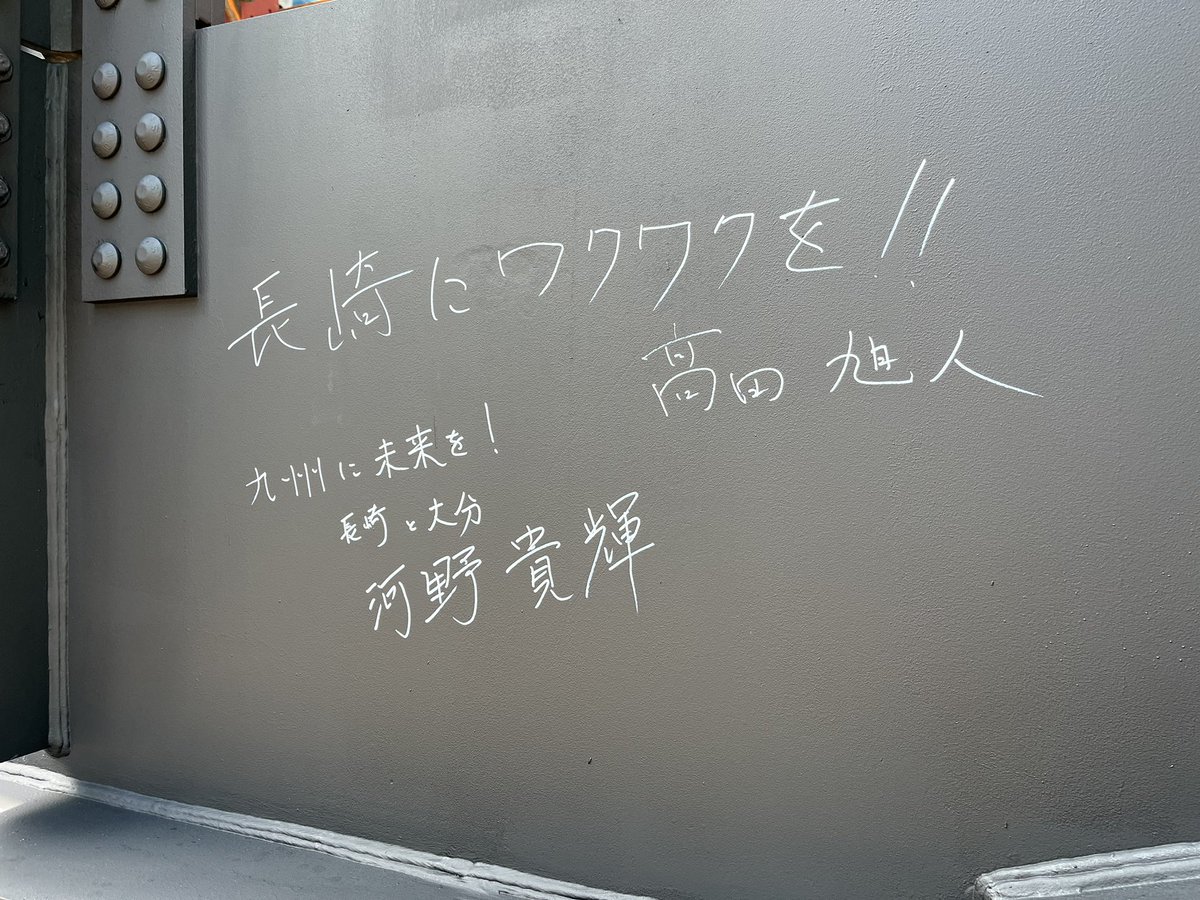 長崎にワクワクを!!
髙田 旭人
九州に未来を!
長崎と大分
河野 貴輝